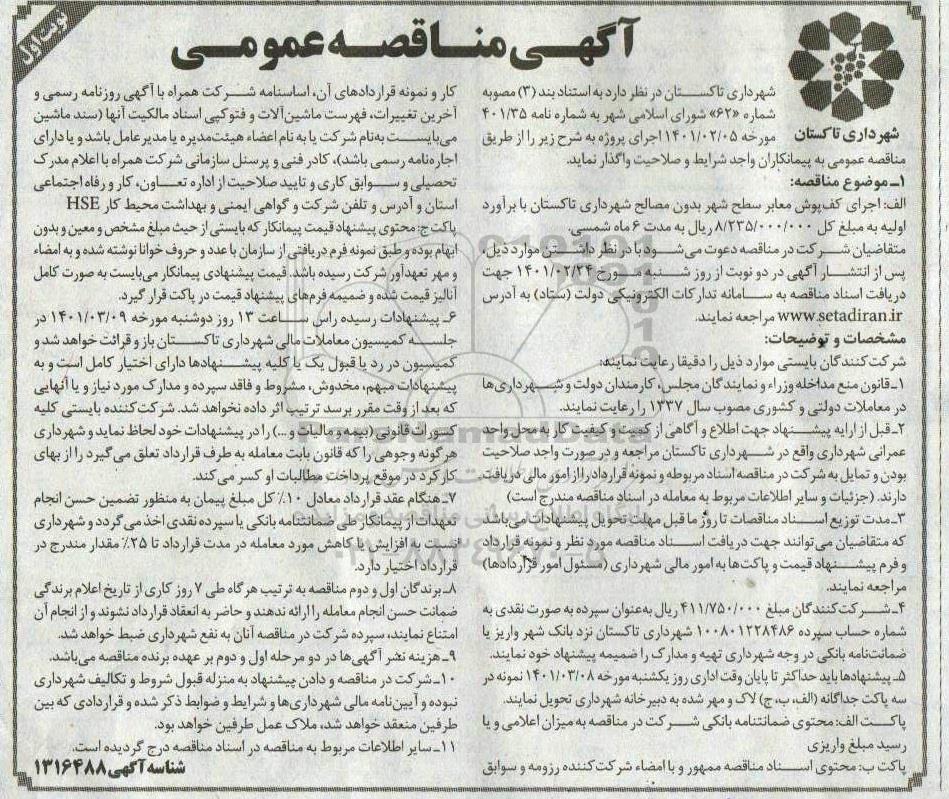 نوبت اول
آگهی مناقصه عمومی
شهرداری تاکستان
شهرداری تاکستان در نظر دارد به استناد بند (۳) مصوبه
شماره «۶۲» شورای اسلامی شهر به شماره نامه ۴۰۱/۳۵
مورخه ۱۴۰۱/۰۲/۰۵ اجرای پروژه به شرح زیر را از طریق
مناقصه عمومی به پیمانکاران واجد شرایط و صلاحیت واگذار نماید.
۱ـ موضوع مناقصه:
الف: اجرای کف‌پوش معابر سطح شهر بدون مصالح شهرداری تاکستان با برآورد
اولیه به مبلغ کل ۸/۲۳۵/۰۰۰/۰۰۰ ریال به مدت ۶ ماه شمسی.
متقاضیان شرکت در مناقصه دعوت می‌شود با در نظر داشتن موارد ذیل،
پس از انتشار آگهی در دو نوبت از روز شنبه مورخ ۱۴۰۱/۰۲/۲۴ جهت
دریافت اسناد مناقصه به سامانه تدارکات الکترونیکی دولت (ستاد) به آدرس
www.setadiran.ir مراجعه نمایند.
مشخصات و توضیحات:
شرکت‌کنندگان بایستی موارد ذیل را دقیقا رعایت نمایند:
۱ـ قانون منع مداخله وزراء و نمایندگان مجلس، کارمندان دولت و شهرداری‌ها
در معاملات دولتی و کشوری مصوب سال ۱۳۳۷ را رعایت نمایند.
۲ـ قبل از ارایه پیشنهاد جهت اطلاع و آگاهی از کمیت و کیفیت کار به محل واحد
عمرانی شهرداری واقع در شهرداری تاکستان مراجعه و در صورت واجد صلاحیت
بودن و تمایل به شرکت در مناقصه اسناد مربوطه و نمونه قرارداد را از امور مالی دریافت
دارند. (جزئیات و سایر اطلاعات مربوط به معامله در اسناد مناقصه مندرج است)
۳ـ مدت توزیع اسناد مناقصات تا روز ما قبل مهلت تحویل پیشنهادات می‌باشد
که متقاضیان می‌توانند جهت دریافت اسناد مناقصه مورد نظر و نمونه قرارداد
و فرم پیشنهاد قیمت و پاکت‌ها به امور مالی شهرداری (مسئول امور قراردادها)
مراجعه نمایند.
۴ـ شرکت‌کنندگان مبلغ ۴۱۱/۷۵۰/۰۰۰ ریال به‌عنوان سپرده به صورت نقدی به
شماره حساب سپرده ۱۰۰۸۰۱۲۲۸۴۸۶ شهرداری تاکستان نزد بانک شهر واریز یا
ضمانت‌نامه بانکی در وجه شهرداری تهیه و مدارک را ضمیمه پیشنهاد خود نمایند.
۵ـ پیشنهادها باید حداکثر تا پایان وقت اداری روز یکشنبه مورخه ۱۴۰۱/۰۳/۰۸ نمونه در
سه پاکت جداگانه (الف، ب، ج) لاک و مهر شده به دبیرخانه شهرداری تحویل نمایند.
پاکت الف: محتوی ضمانتنامه بانکی شرکت در مناقصه به میزان اعلامی و یا
رسید مبلغ واریزی
پاکت ب: محتوی اسناد مناقصه ممهور و با امضاء شرکت‌کننده رزومه و سوابق
کار و نمونه قراردادهای آن، اساسنامه شرکت همراه با آگهی روزنامه رسمی و
آخرین تغییرات، فهرست ماشین‌آلات و فتوکپی اسناد مالکیت آنها (سند ماشین
می‌بایست به‌نام شرکت یا به نام اعضاء هیئت‌مدیره یا مدیرعامل باشد و یا دارای
اجاره‌نامه رسمی باشد)، کادر فنی و پرسنل سازمانی شرکت همراه با اعلام مدرک
تحصیلی و سوابق کاری و تایید صلاحیت از اداره تعاون، کار و رفاه اجتماعی
استان و آدرس و تلفن شرکت و گواهی ایمنی و بهداشت محیط کار HSE
پاکت ج: محتوی پیشنهاد قیمت پیمانکار که بایستی از حیث مبلغ مشخص و معین و بدون
ابهام بوده و طبق نمونه فرم دریافتی از سازمان با عدد و حروف خوانا نوشته شده و به امضاء
و مهر تعهدآور شرکت رسیده باشد. قیمت پیشنهادی پیمانکار می‌بایست به صورت کامل
آنالیز قیمت شده و ضمیمه فرم‌های پیشنهاد قیمت در پاکت قرار گیرد.
۶ـ پیشنهادات رسیده راس ساعت ۱۳ روز دوشنبه مورخه ۱۴۰۱/۰۳/۰۹ در
جلسه کمیسیون معاملات مالی شهرداری تاکستان باز و قرائت خواهد شد و
کمیسیون در رد یا قبول یک یا کلیه پیشنهادها دارای اختیار کامل است و به
پیشنهادات مبهم، مخدوش، مشروط و فاقد سپرده و مدارک مورد نیاز و یا آنهایی
که بعد از وقت مقرر برسد ترتیب اثر داده نخواهد شد. شرکت‌کننده بایستی کلیه
کسورات قانونی (بیمه و مالیات و...) را در پیشنهادات خود لحاظ نماید و شهرداری
هرگونه وجوهی را که قانون بابت معامله به طرف قرارداد تعلق می‌گیرد را از بهای
کارکرد در موقع پرداخت مطالبات او کسر می‌کند.
۷ـ هنگام عقد قرارداد معادل ۱۰٪ کل مبلغ پیمان به منظور تضمین حسن انجام
تعهدات از پیمانکار طی ضمانتنامه بانکی یا سپرده نقدی اخذ می‌گردد و شهرداری
نسبت به افزایش یا کاهش مورد معامله در مدت قرارداد تا ۲۵٪ مقدار مندرج در
قرارداد اختیار دارد.
۸ـ برندگان اول و دوم مناقصه به ترتیب هرگاه طی ۷ روز کاری از تاریخ اعلام برندگی
ضمانت حسن انجام معامله را ارائه ندهند و حاضر به انعقاد قرارداد نشوند و از انجام آن
امتناع نمایند، سپرده شرکت در مناقصه آنان به نفع شهرداری ضبط خواهد شد.
۹ـ هزینه نشر آگهی‌ها در دو مرحله اول و دوم بر عهده برنده مناقصه می‌باشد.
۱۰ـ شرکت در مناقصه و دادن پیشنهاد به منزله قبول شروط و تکالیف شهرداری
نبوده و آیین‌نامه مالی شهرداری‌ها و شرایط و ضوابط ذکر شده و قراردادی که بین
طرفین منعقد خواهد شد، ملاک عمل طرفین خواهد بود.
۱۱ـ سایر اطلاعات مربوط به مناقصه در اسناد مناقصه درج گردیده است.
شناسه آگهی ۱۳۱۶۴۸۸
ParsNamadData